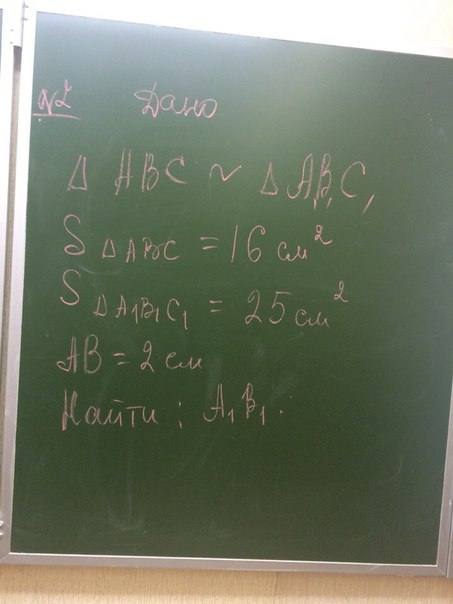 №2 Дано
Δ ABC ~ Δ A₁B₁C₁
S Δ ABC = 16 см²
S Δ A₁B₁C₁ = 25 см²
AB = 2 см
Найти: A₁B₁.